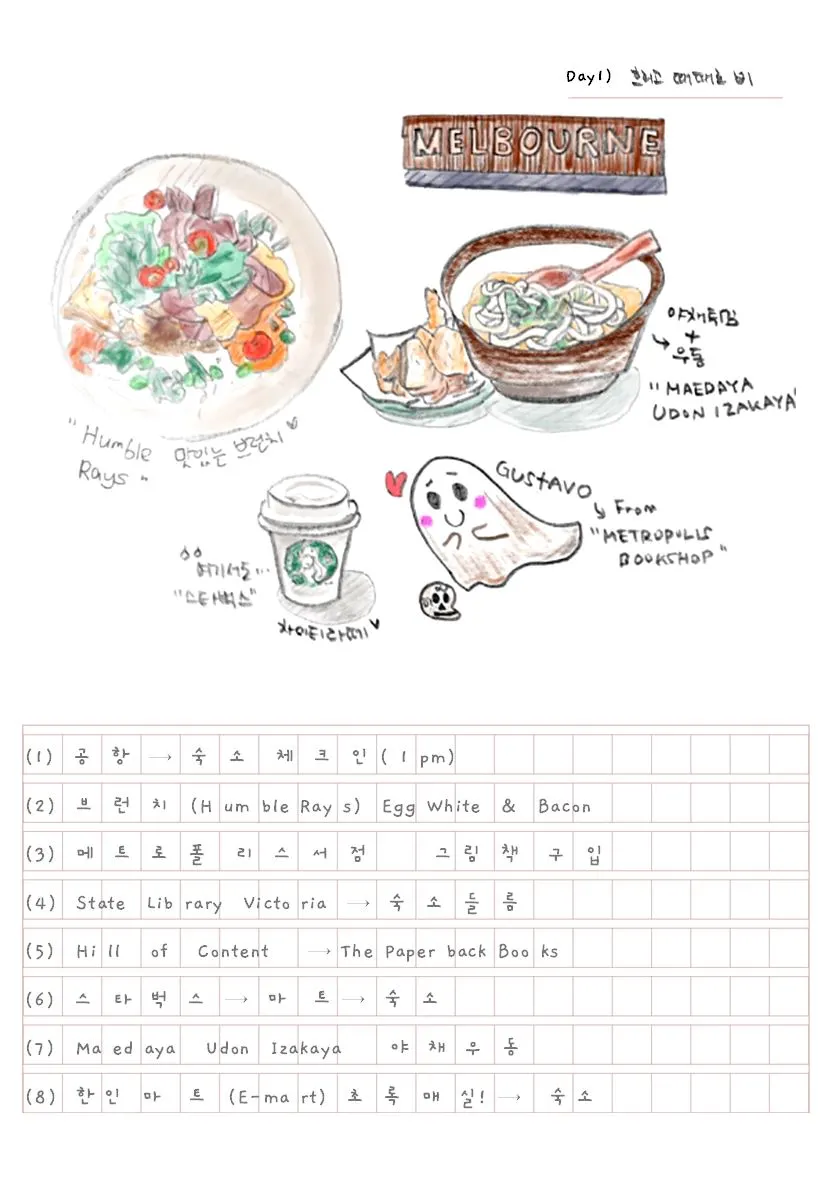 Day1) 흐리고 때때로 비
MELBOURNE
야채튀김
+
우동
"MAEDAYA
UDON IZAKAYA"
"Humble
Rays"
맛있는 브런치
GUSTAVO
From
"METROPOLIS
BOOKSHOP"
여기서도...
"스타벅스"
차이티라떼
(1) 공항 → 숙소 체크인(1pm)
(2) 브런치 (Humble Rays) Egg White & Bacon
(3) 메트로폴리스서점 그림책구입
(4) State Library Victoria → 숙소들름
(5) Hill of Content → The Paper back Books
(6) 스타벅스 → 마트 → 숙소
(7) Maedaya Udon Izakaya 야채우동
(8) 한인마트 (E-mart) 초록매실! → 숙소